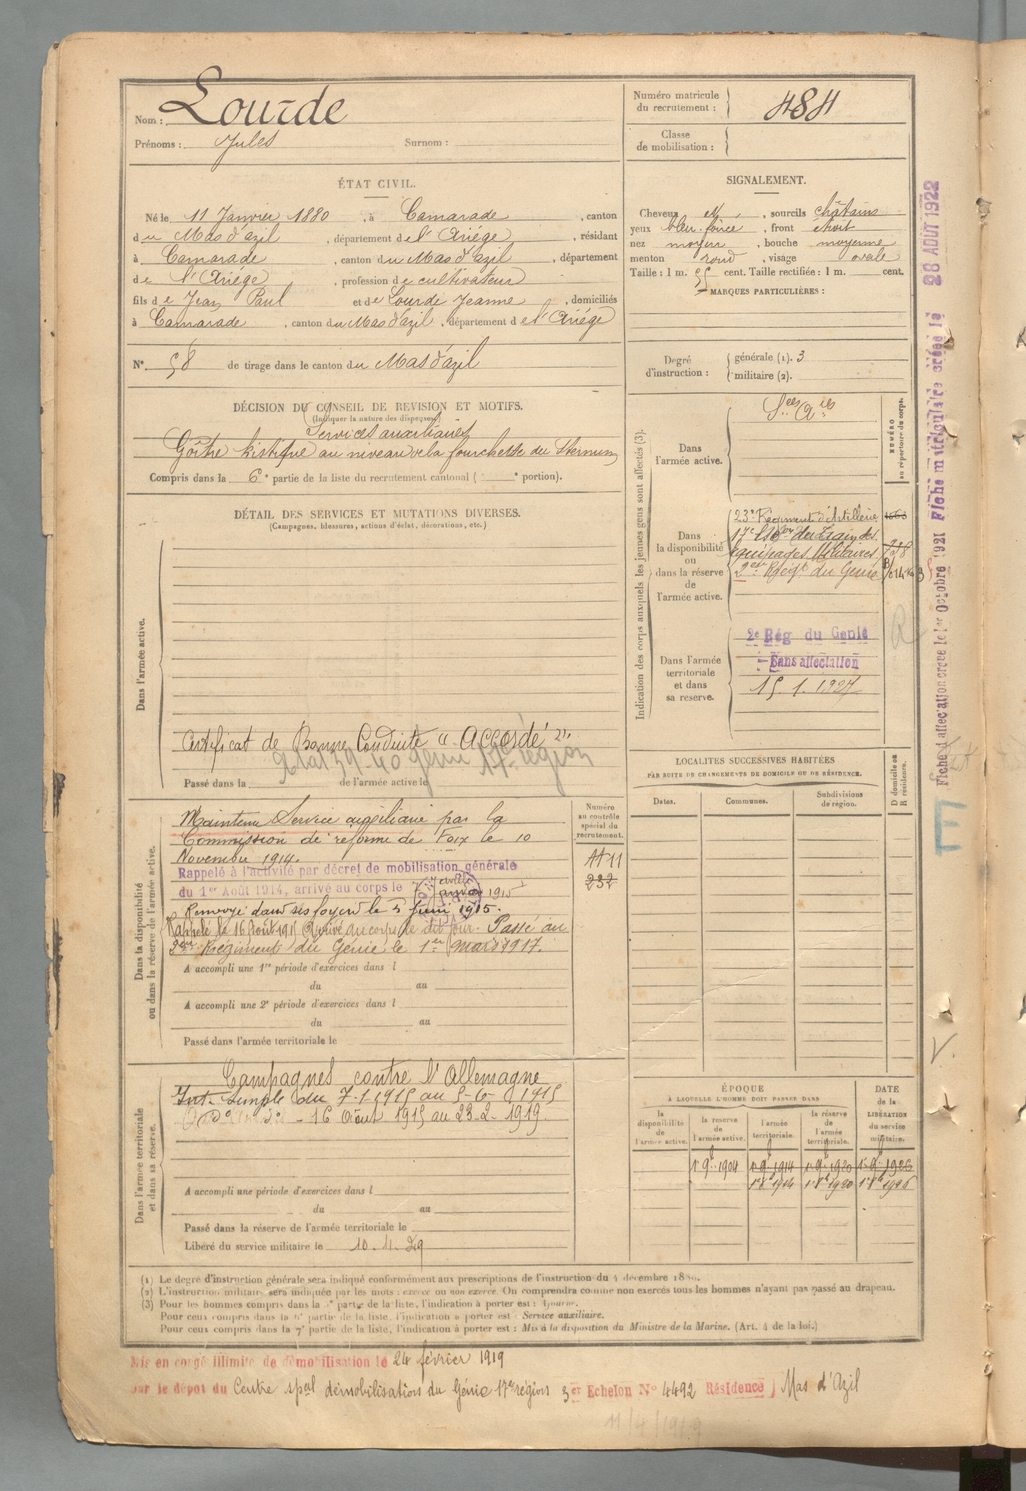 Nom : Lourde
Prénoms : Jules Surnom :
Numéro matricule
du recrutement : 484
Classe
de mobilisation :
ÉTAT CIVIL.
Né le 11 Janvier 1880, à Camarade, canton
du Mas d'azil, département de l'Ariége, résidant
à Camarade, canton du Mas d'azil, département
de l'Ariége, profession de cultivateur
fils de Jean Paul et de Lourde Jeanne, domiciliés
à Camarade, canton du Mas d'azil, département de l'Ariége
N° 58 de tirage dans le canton du Mas d'azil
SIGNALEMENT.
Cheveux et, sourcils châtains
yeux bleu foncé, front étroit
nez moyen, bouche moyenne
menton rond, visage ovale
Taille : 1 m. 55 cent. Taille rectifiée : 1 m. cent.
MARQUES PARTICULIÈRES :
Degré
d'instruction :
générale (1). 3
militaire (2).
DÉCISION DU CONSEIL DE REVISION ET MOTIFS.
(Indiquer la nature des dispenses)
Services auxiliaires
Goître kistique au niveau de la fourchette du Sternum
Compris dans la 6e partie de la liste du recrutement cantonal ( e portion).
DÉTAIL DES SERVICES ET MUTATIONS DIVERSES.
(Campagnes, blessures, actions d'éclat, décorations, etc.)
Dans l'armée active.
Certificat de Bonne Conduite "Accordé".
17e région
Passé dans la de l'armée active le
Indication des corps auxquels les jeunes gens sont affectés (3).
NUMÉRO
au répertoire du corps.
Dans
l'armée active.
Dans
la disponibilité
ou
dans la réserve
de
l'armée active.
23e Régiment d'Artillerie
17e Esc.on du Train des
équipages Militaires
2ème Régt du Génie
Dans l'armée
territoriale
et dans
sa réserve.
2e Rég du Génie
Sans affectation
15.1.1927
Dans la disponibilité
ou dans la réserve de l'armée active.
Maintenu Service auxiliaire par la
Commission de réforme de Foix le 10
Novembre 1914.
Rappelé à l'activité par décret de mobilisation générale
du 1er Août 1914, arrivé au corps le 7 Janvier 1915
Renvoyé dans ses foyers le 5 Juin 1915.
Rappelé le 16 Août 1915 Arrivé au corps le dit jour. Passé au
2ème Régiment du Génie le 1er mars 1917.
A accompli une 1re période d'exercices dans l
du au
A accompli une 2e période d'exercices dans l
du au
Passé dans l'armée territoriale le
Numéro
au contrôle
spécial du
recrutement.
232
LOCALITES SUCCESSIVES HABITÉES
PAR SUITE DE CHANGEMENTS DE DOMICILE OU DE RÉSIDENCE.
Dates. Communes. Subdivisions
de région.
D domicile ou
R résidence.
Dans l'armée territoriale
et dans sa réserve.
Campagnes contre l'Allemagne
Int. Simple du 7-1-1915 au 5-6-1915
16 Août 1915 au 23-2-1919
A accompli une période d'exercices dans l
du au
Passé dans la réserve de l'armée territoriale le
Libéré du service militaire le 10.11.29
ÉPOQUE
À LAQUELLE L'HOMME DOIT PASSER DANS
DATE
de la
LIBÉRATION
du service
militaire.
la
disponibilité
de
l'armée active.
la réserve
de
l'armée active.
l'armée
territoriale.
la réserve
de
l'armée
territoriale.
1er 9bre 1904 1er 9bre 1914 1er 9bre 1920 1er 9bre 1926
1er 8bre 1914 1er 8bre 1920 1er 8bre 1926
(1) Le degré d'instruction générale sera indiqué conformément aux prescriptions de l'instruction du 4 décembre 1889.
(2) L'instruction militaire sera indiquée par les mots : exercé ou non exercé. On comprendra comme non exercés tous les hommes n'ayant pas passé au drapeau.
(3) Pour les hommes compris dans la partie de la liste, l'indication à porter est : Ajourné.
Pour ceux compris dans la 6e partie de la liste, l'indication à porter est : Service auxiliaire.
Pour ceux compris dans la 7e partie de la liste, l'indication à porter est : Mis à la disposition du Ministre de la Marine. (Art. 4 de la loi.)
Mis en congé illimité de démobilisation le 24 février 1919
par le dépôt du Centre spal démobilisations du Génie 17e région 3e Echelon N° 4492 Résidence Mas d'Azil
11/4/1919
Fiche d'affectation créée le 1er Octobre 1921 Fiche matriculaire créée le 28 AOUT 1922